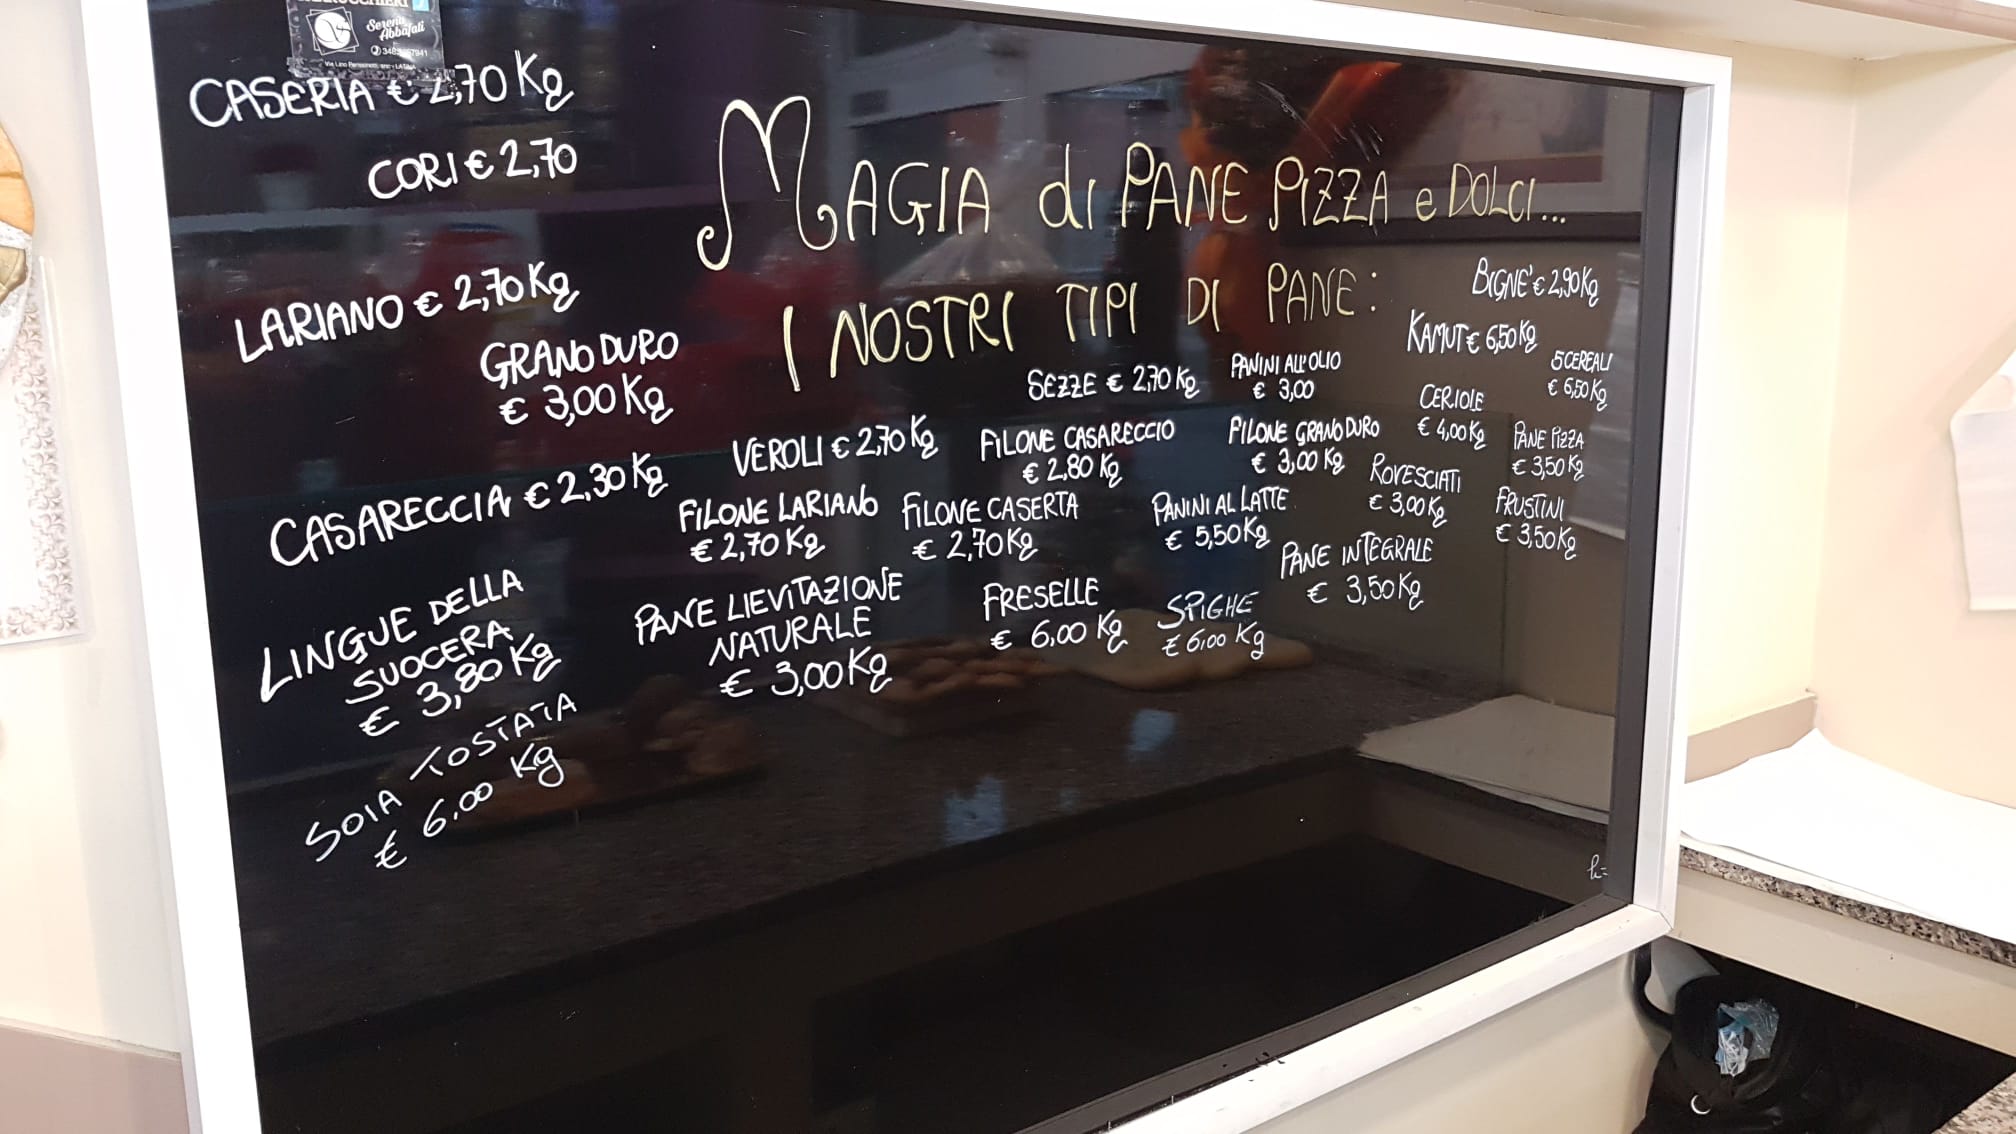 Serena
Abbafati
CASERTA € 2,70 Kg
CORI € 2,70
MAGIA di PANE PIZZA e DOLCI...
I NOSTRI TIPI DI PANE:
LARIANO € 2,70 Kg
GRANO DURO
€ 3,00 Kg
CASARECCIA € 2,30 Kg
LINGUE DELLA
SUOCERA
€ 3,80 Kg
SOIA TOSTATA
€ 6,00 Kg
VEROLI € 2,70 Kg
FILONE LARIANO
€ 2,70 Kg
PANE LIEVITAZIONE
NATURALE
€ 3,00 Kg
SEZZE € 2,70 Kg
FILONE CASARECCIO
€ 2,80 Kg
FILONE CASERTA
€ 2,70 Kg
FRESELLE
€ 6,00 Kg
PANINI ALL'OLIO
€ 3,00
FILONE GRANO DURO
€ 3,00 Kg
PANINI AL LATTE
€ 5,50 Kg
SPIGHE
€ 6,00 Kg
BIGNE' € 2,90 Kg
KAMUT € 6,50 Kg
5 CEREALI
€ 6,50 Kg
CERIOLE
€ 4,00 Kg
PANE PIZZA
€ 3,50 Kg
ROVESCIATI
€ 3,00 Kg
FRUSTINI
€ 3,50 Kg
PANE INTEGRALE
€ 3,50 Kg